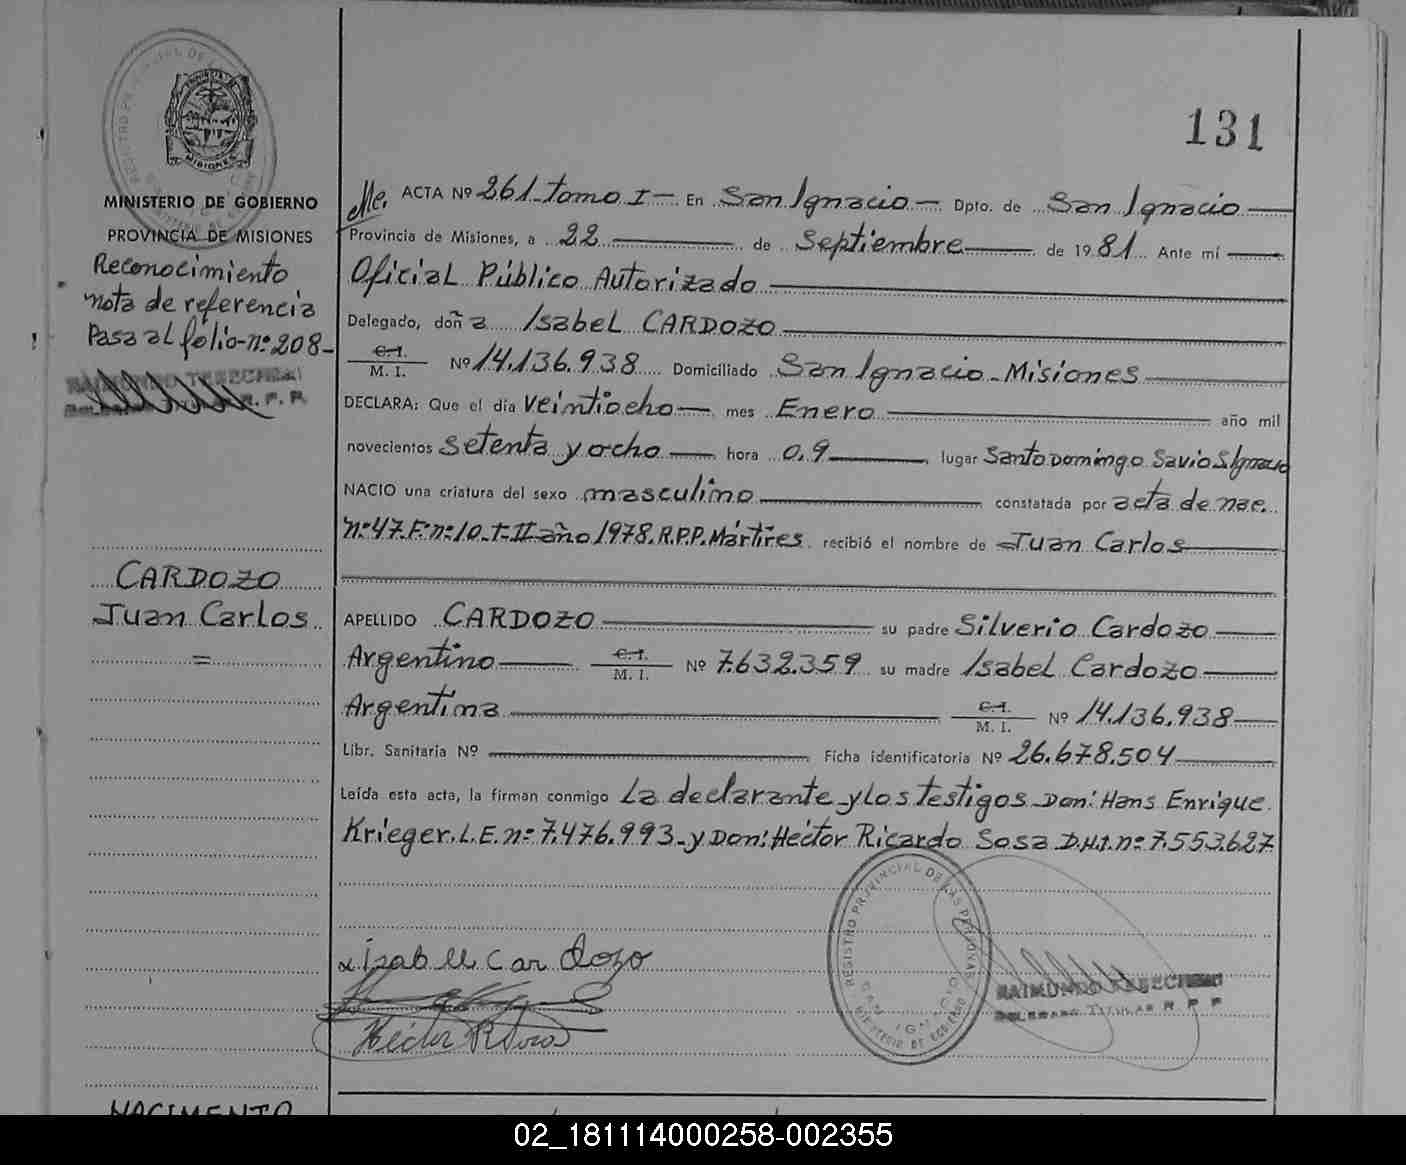 131
PROVINCIA DE
MISIONES
MINISTERIO DE GOBIERNO
PROVINCIA DE MISIONES
Reconocimiento
nota de referencia
Pasa al folio-nº 208-
R. P. P.
CARDOZO
Juan Carlos
=
Me. ACTA Nº 261-tomo I- En San Ignacio- Dpto. de San Ignacio
Provincia de Misiones, a 22 de Septiembre de 1981 Ante mí
Oficial Público Autorizado
Delegado, doña Isabel CARDOZO
C.I.
M. I. Nº 14.136.938 Domiciliado San Ignacio-Misiones
DECLARA: Que el día veintiocho mes Enero año mil
novecientos setenta y ocho hora 0.9 lugar Santo Domingo Savio S/Ignacio
NACIO una criatura del sexo masculino constatada por acta de nac.
nº 47.Fº nº 10-T-II-año 1978.R.P.P. Mártires recibió el nombre de Juan Carlos
APELLIDO CARDOZO su padre Silverio Cardozo
Argentino C.I. M. I. Nº 7.632.359 su madre Isabel Cardozo
Argentina C.I. M. I. Nº 14.136.938
Libr. Sanitaria Nº Ficha identificatoria Nº 26.678.504
Leída esta acta, la firman conmigo La declarante-y los testigos-Don: Hans Enrique
Krieger.L.E.nº 7.476.993-y Don: Héctor Ricardo Sosa D.N.I.nº 7.553.627
REGISTRO PROVINCIAL DE LAS PERSONAS
SAN IGNACIO
MINISTERIO DE GOBIERNO
x Izabell Cardozo
Héctor R Sosa
RAIMUNDO
DELEGADO TITULAR R. P. P.
NACIMIENTO
02_181114000258-002355